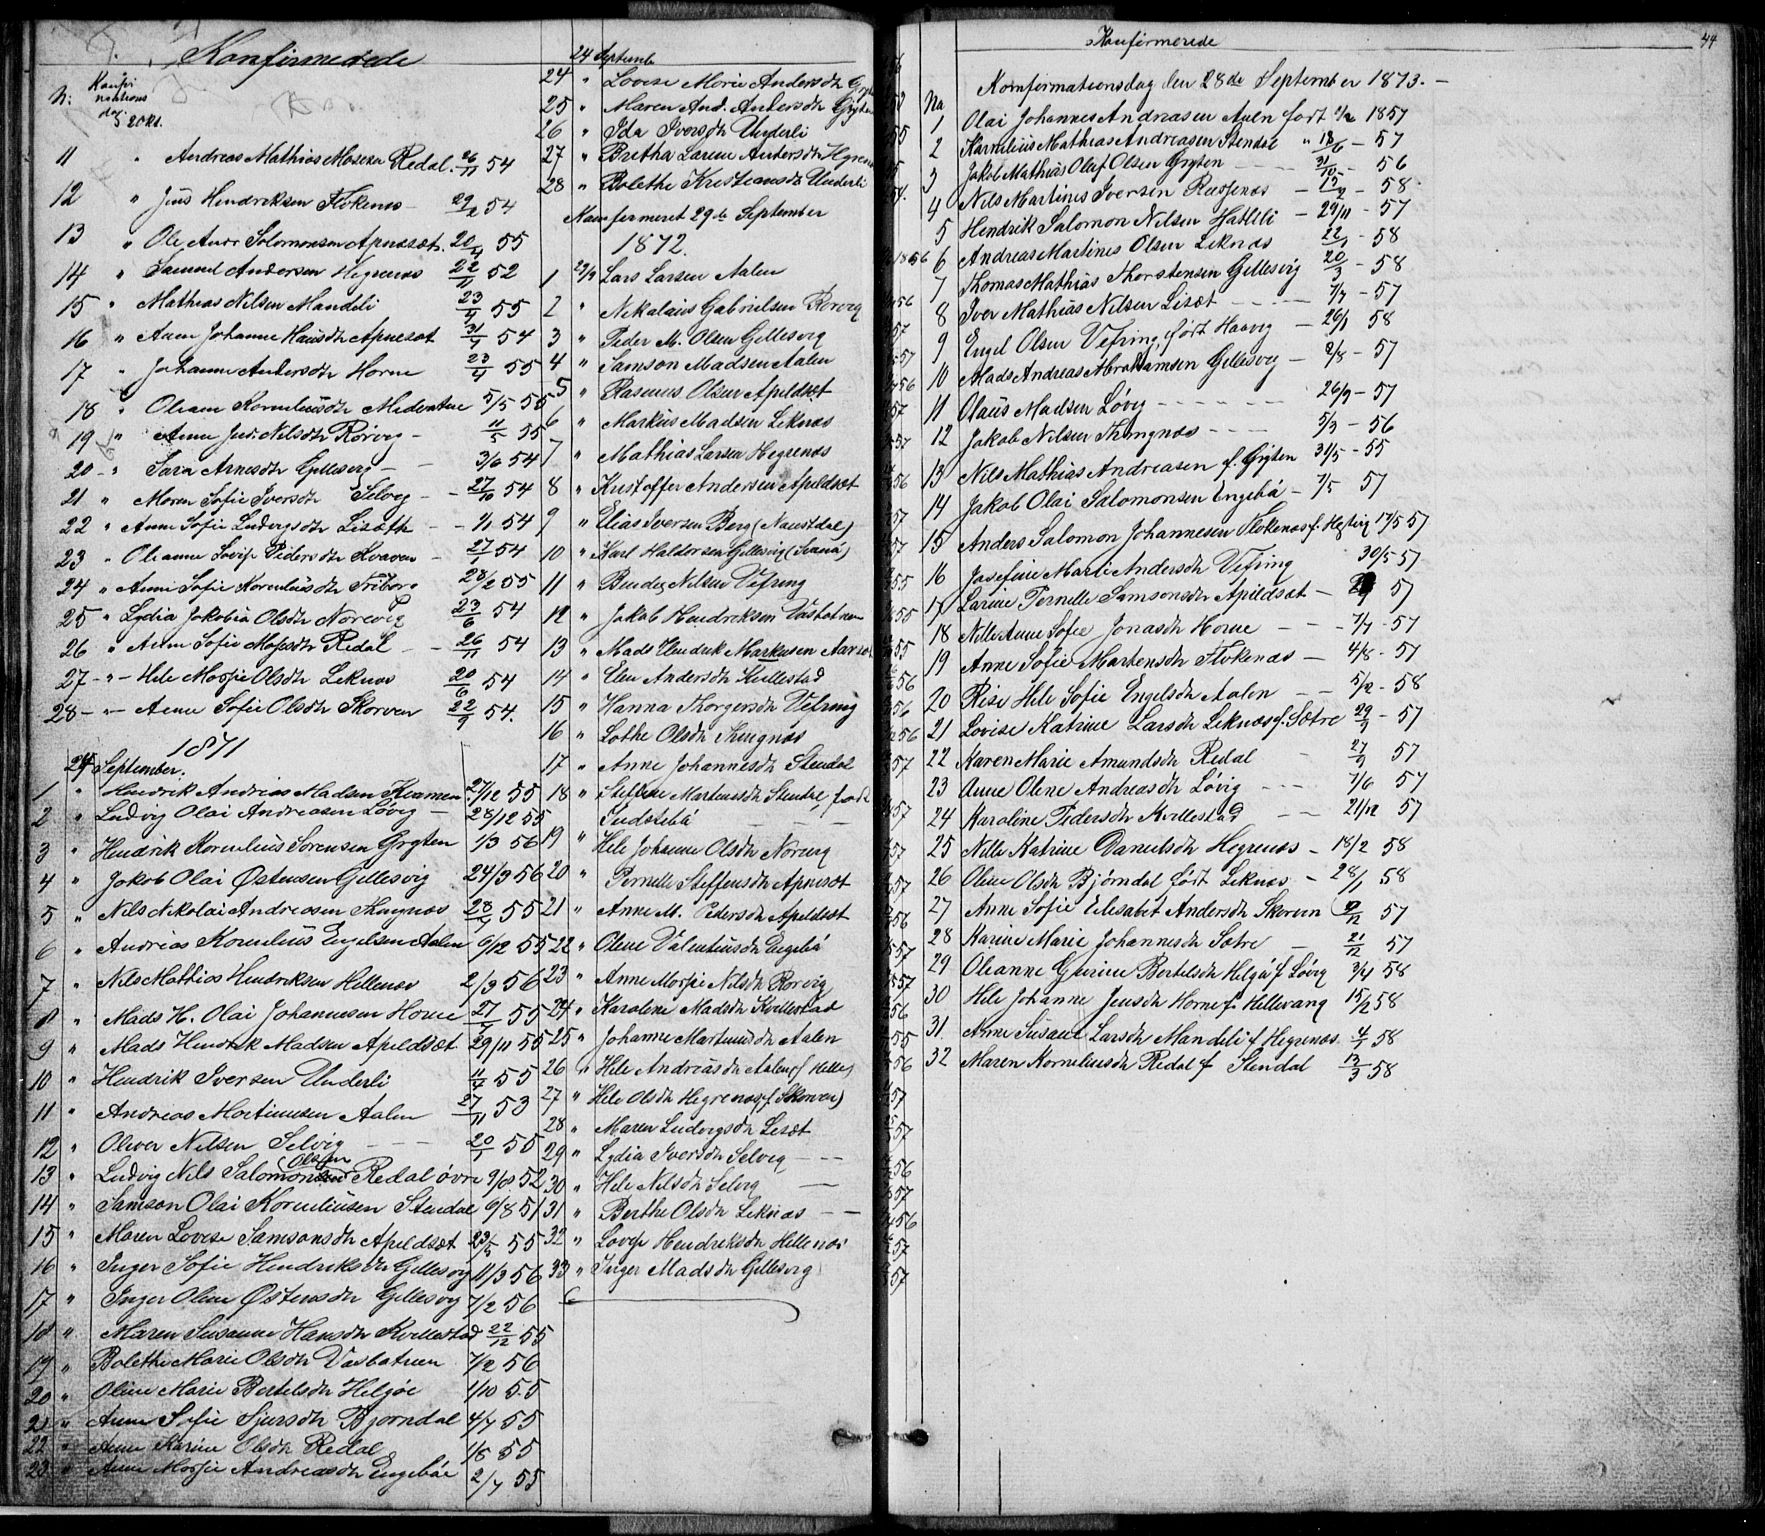 Konfirmerede
N:
Konfir
mations
dag
2 Okt.
11 " Andreas Mathias Mosesen Redal. 26/11 54
12 " Jens Hendriksen Flokenes 29/2 54
13 " Ole Salomonsen Apnesæt. 20/4 55
14 " Samuel Andersen Hegrenes 22/11 52
15 " Mathias Nilsen Mandeli 23/4 55
16 " Anne Johanne Hansdtr Apnesæt 54
17 " Johanne Andersdtr Horne 23/4 55
18 " Oleane Korneliusdtr 5/5 55
19 " Anne Nilsdtr Rörvig - 11/5 55
20 - " Sara Arnesdtr Gellesvig - 3/6 54
21 " Maren Sofie Iversdtr Selvig - 27/10 54
22 " Anne Sofie Ludvigsdtr Lisæth - 1/1 54
23 " Oleanne Lovise Pedersdtr Kvamen - 27/1 54
24 " Anne Sofie Korneliusdtr 28/2 55
25 " Lydia Jakobia Olsdtr Norevig 23/6 54
26 " Anne Sofie Mosesdtr Redal - 26/11 54
27 - " - Hele Marie Olsdtr Leknes 20/6 54
28 - " - Anne Sofie Olsdtr Skorven 22/9 54.
1871
24 September.
1 " Hendrik Andreas Madsen Kvamen 27/12 55
2 " Ludvig Olai Andreasen Lövig - 28/12 55
3 " Hendrik Kornelius Sörensen Gryten 1/3 56
4 " Jakob Olai Østensen Gellesvig 24/3 56
5 " Nils Nikolai Andreasen Thingnes 55
6 " Andreas Kornelius Engelsen Aalen 6/12 55
7 " Nils Mathias Hendriksen Hellenes 2/3 56
8 " Mads H. Olai Johannesen Horne 55
9 " Mads Hendrik Madsen Apeldsæt 29/11 55
10 " Hendrik Iversen Underli 11/4 55
11 " Andreas Martinusen Aalen 27/11 53
12 " Oliver Nilsen Selvig - - - 20/1 55
13 " Ludvig Nils Salomonsen Olsen Redal övre 9/8 52
14 " Samson Olai Korneliusen Stendal 6/8 51
15 " Maren Lovise Samsonsdtr Apeldsæt 23/5 55
16 " Inger Sofie Hendriksdtr Gellesvig 11/3 56
17 " Inger Oline Østensdtr Gellesvig 7/2 56
18 " Maren Susanne Hansdtr Kvillestad 22/12 55
19 " Bolethe Marie Olsdtr Vasbotnen 7/2 56
20 " Oline Marie Bertelsdtr Helgöe 1/10 55
21 " Anne Sofie Sjursdtr Bjorndal 4/7 55
22 " Anne Karine Olsdtr Redal 1/5 55
23 " Anne Andreasdtr Engeböe 2/7 55
24 Septemb
24 " Lovise Marie Andersdtr
25 " Maren And. Andersdtr Gryten
26 " Ida Iversdtr Underli
27 " Bretha Larine Andersdtr
28 " Bolethe Kristiansdtr Underli
Konfirmeret 29de September
1872.
1 29/9 Lars Larsen Aalen
2 " Nikolaus Gabrielsen Rörvig
3 " Peder M. Olsen Gellesvig
4 " Samson Madsen Aalen
5 " Rasmus Olsen Apeldsæt
6 " Markus Madsen Leknes
7 " Mathias Larsen Hegrenes
8 " Kristoffer Andersen Apeldsæt
9 " Elias Iversen Berg (Naustdal)
10 " Karl Haldorsen Gellesvig
11 " Bendex Nilsen Vefring
12 " Jakob Hendriksen Vasbotnen
13 " Mads Hendrik Markusen
14 " Elen Andersdtr Kvillestad
15 " Hanna Thorgersdtr Vefring
16 " Lothe Olsdtr Thingnes
17 " Anne Johannesdtr Stendal
18 " Steffine Martinusdtr Stendal, födt
Indrebö
19 " Hele Johanne Olsdtr Norevig
20 " Pernille Steffensdtr Apnesæt
21 " Anne M. Pedersdtr Apeldsæt
22 " Oline Valentinsdtr Engebö
23 " Anne Nilsdtr Rörvig
24 " Karoline Madsdtr Kvillestad
25 " Johanne Martinusdtr Aalen
26 " Hele Andreasdtr Aalen (f Helle)
27 " Hele Olsdtr Hegrenes (f. Skorven)
28 " Maren Ludvigsdtr Lisæt
29 " Lydia Iversdtr Selvig - - -
30 " Hele Nilsdtr Selvig -
31 " Berthe Olsdtr Leknes - -
32 " Lovise Hendriksdtr Hellenes
33 " Inger Madsdtr Gellesvig
Konfirmerede
44
Konfirmationsdag den 28de September 1873. -
No
1 Olai Johannes Andreasen Aalen født 1857
2 Kornelius Mathias Andreasen Stendal " 18/6 - 57
3 Jakob Mathias Olaf Olsen Gryten - 31/10 - 56
4 Nils Martines Iversen - 58
5 Hendrik Salomon Nilsen Hatleli - 29/11 - 57
6 Andreas Martines Olsen Leknes 22/1 - 58
7 Thomas Mathias Thorstensen Gellesvig 20/3 - 58
8 Iver Mathias Nilsen Lisæt - - - 7/7 - 57
9 Engel Olsen Vefring, født Haavig - 26/1 58
10 Mads Andreas Abrahamsen Gellesvig - 2/8 - 57
11 Olaus Madsen Løvig - - - 26/9 - 57
12 Jakob Nilsen Thingnæs - - - 5/3 - 56
13 Nils Mathias Andreasen f. Gryten 31/5 - 55
14 Jakob Olai Salomonsen Engebö - 7/5 57
15 Anders Salomon Johannesen Flokenes f. 17/5 57
16 Josefine Marie Andersdtr Vefring 30/5 57
17 Larine Pernille Samsonsdtr Apeldsæt - 57
18 Nille Anne Sofie Jonasdtr Horne - - - 7/7 - 57
19 Anne Sofie Martensdtr Flokenes - 4/8 - 57
20 Rise Hele Sofie Engelsdtr Aalen - - 5/2 - 58
21 Lovise Katrine Larsdtr Leknes f. Sætre 29/9 - 57
22 Karen Marie Amundsdtr Redal - 27/9 57
23 Anne Oline Andreasdtr Løvig - - - 7/6 57
24 Karoline Pedersdtr Kvillestad - - 21/12 57
25 Nille Katrine Danielsdtr Hegrenes - 18/2 58
26 Oline Olsdtr Bjørndal født Leknes - 28/1 58
27 Anne Sofie Elisabet Andersdtr Skorven 57
28 Karine Marie Johannesdtr Sætre - 21/12 57
29 Oleanne Gurine Bertelsdtr Helgö f Løvig 3/4 58
30 Hele Johanne Jensdtr Horne f. Hellevang 15/2 58
31. Anne Susanne Larsdtr Mandeli f Hegrenes. 4/1 58
32 Maren Korneliusdtr Redal f Stendal 13/3 58